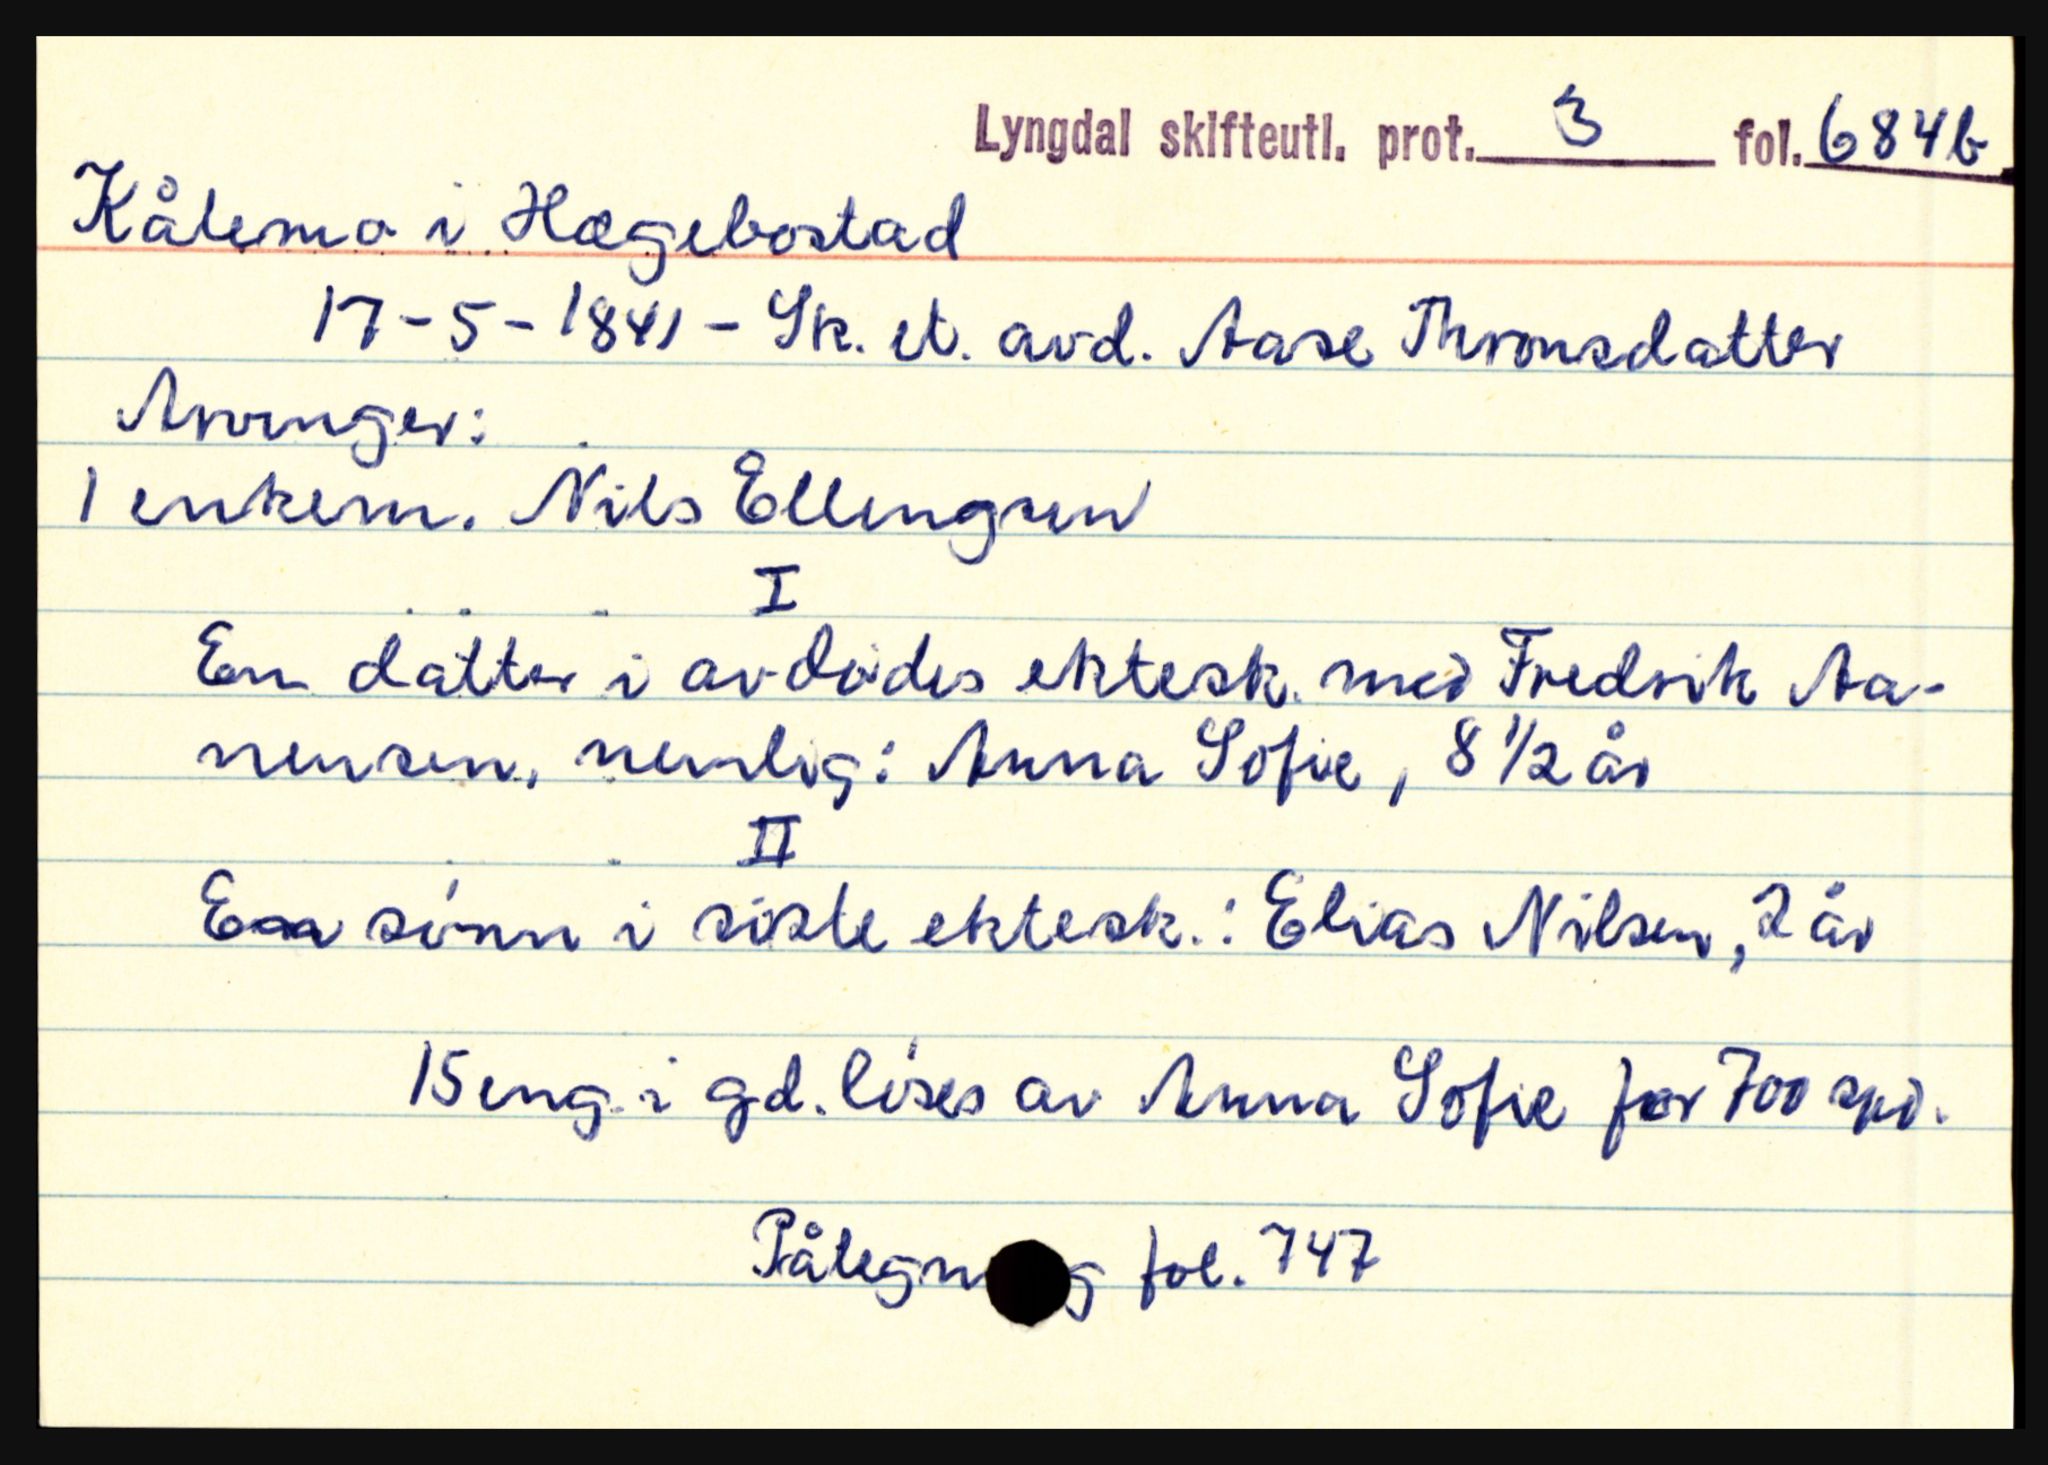 Lyngdal skifteutl. prot. 3 fol. 684b
Kålemo i Hægebostad
17-5-1841 - Sk. et. avd. Aase Thronsdatter
Arvinger:
1 enkem. Nils Ellingsen
I
En datter i avdødes ektesk. med Fredrik Aa-
nensen, nemlig: Anna Sofie, 8 1/2 år
II
En sønn i siste ektesk.: Elias Nilsen, 2 år
15 eng. i gd. løses av Anna Sofie for 700 spd.
Påtegning fol. 747